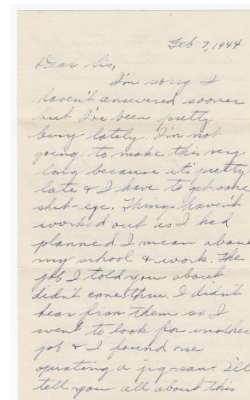 Feb 7, 1944
Dear Sis,
I'm sorry I
haven't answered sooner
but I've been pretty
busy lately. I'm not
going to make this very
long because it's pretty
late & I have to get some
shut-eye. Things haven't
worked out as I had
planned I mean about
my school & work. The
job I told you about
didn't come thru. I didn't
hear from them so I
went to look for another
job & I found one
operating a jig-saw. I'll
tell you all about this